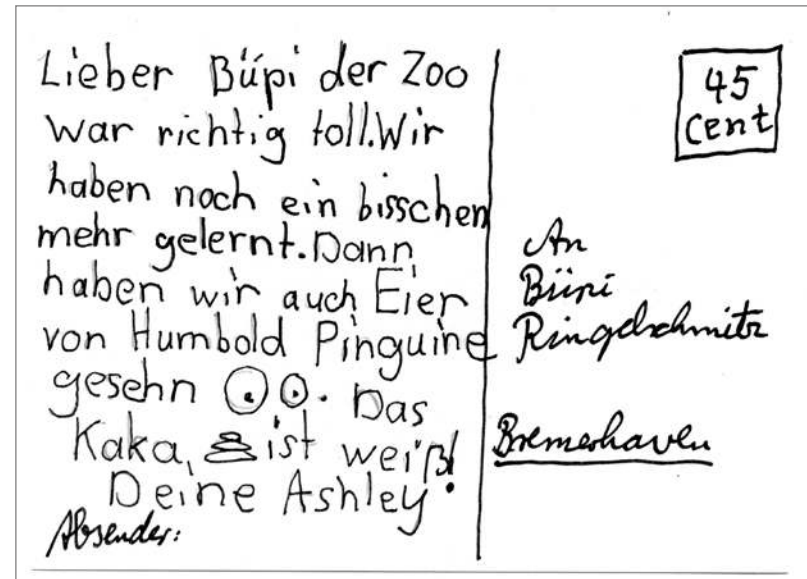 Lieber Büpi der Zoo
war richtig toll.Wir
haben noch ein bisschen
mehr gelernt.Dann
haben wir auch Eier
von Humbold Pinguine
gesehn . Das
Kaka, ist weiß!
Deine Ashley
Absender:
45
cent
An
Büpi
Ringelschmitz
Bremerhaven